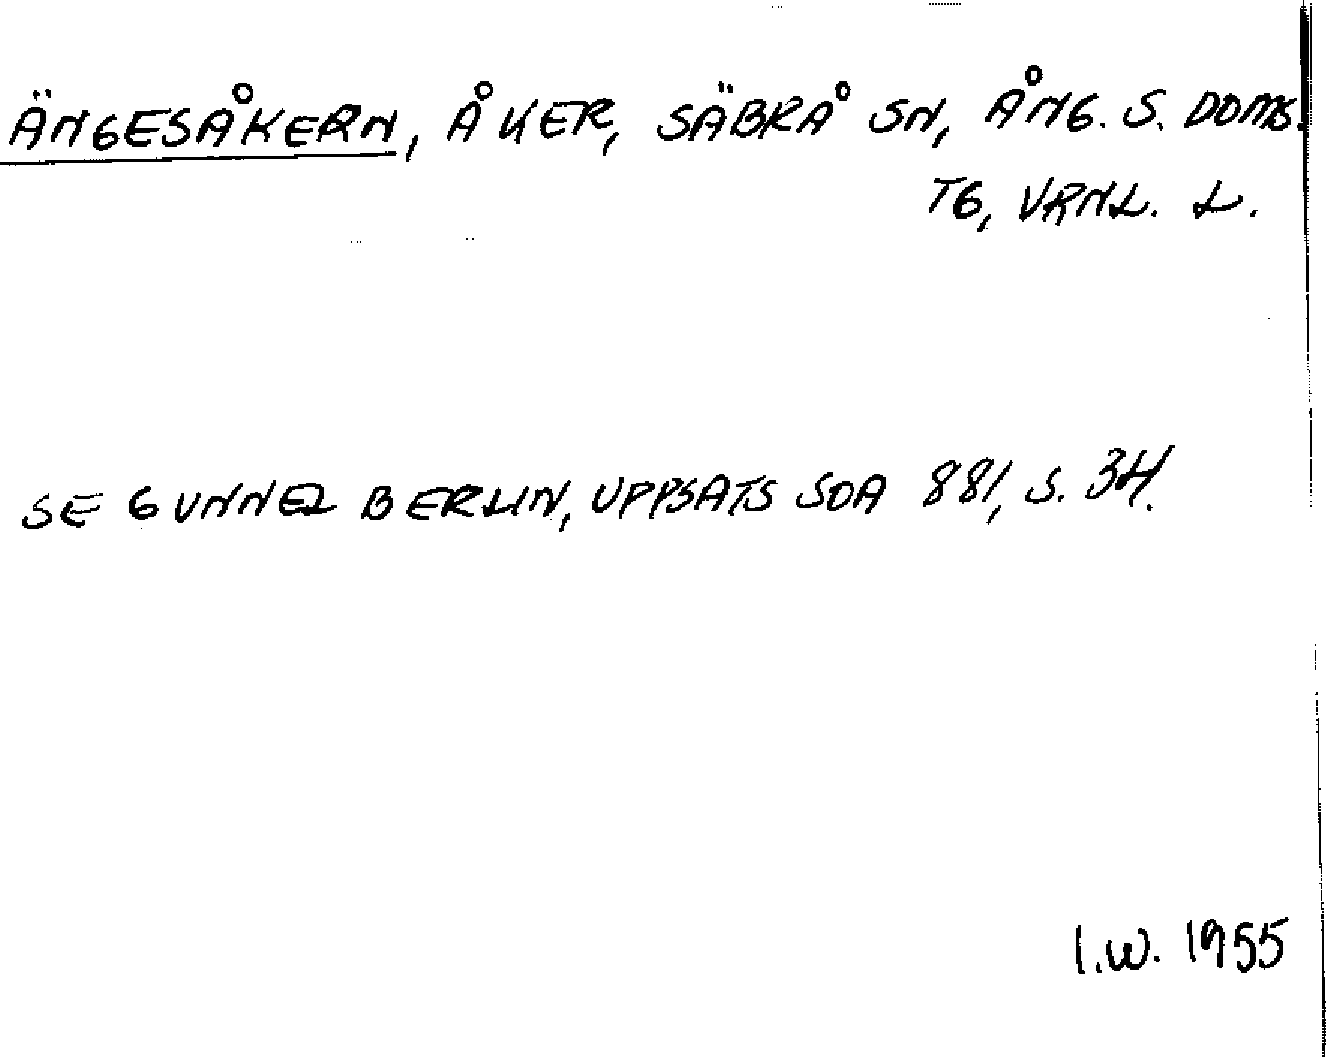 ÄNGESÅKERN, ÅKER, SÄBRÅ SN, ÅNG. S. DOMS.
TG, VRNL. L.
SE GUNNEL BERLIN, UPPSATS SOA 881, S. 34.
I.W. 1955